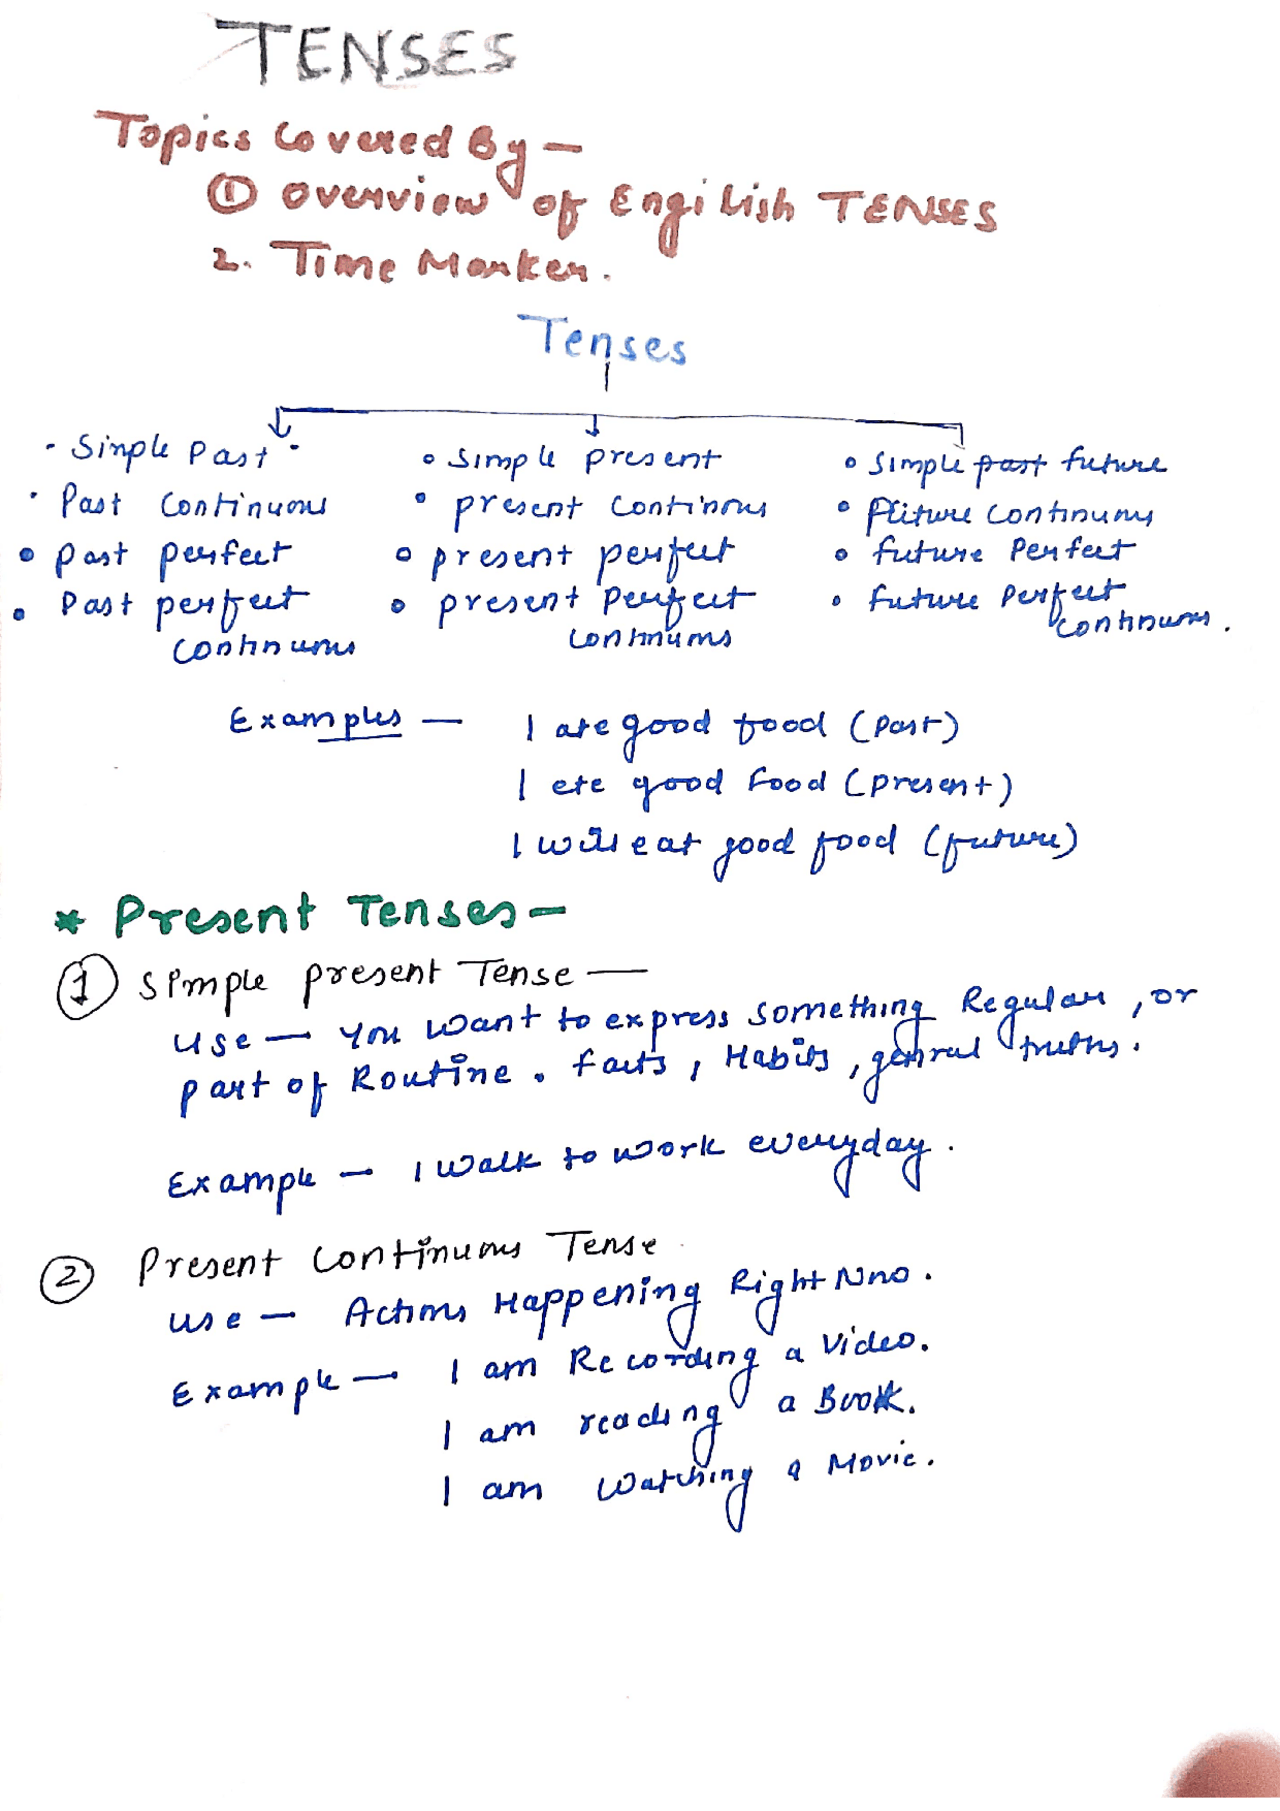 TENSES
Topics Covered By —
① Overview of Engilish TENSES
2. Time Marker.
Tenses
· Simple Past · • Simple present • Simple past future
· Past Continuous • present Continous • future Continuus
• Past perfect • present perfect • future Perfect
• Past perfect • present perfect • future perfect
continuous continuous continuous.
Examples — I ate good food (Past)
I ete good food (present)
I will eat good food (future)
* Present Tenses —
① Simple present Tense —
Use — You want to express something Regular, or
part of Routine. facts, Habits, genral truths.
Example — I walk to work everyday.
② Present Continuous Tense
Use — Actions Happening Right Nno.
Example — I am Recording a Video.
I am reading a Book.
I am watching a Movie.